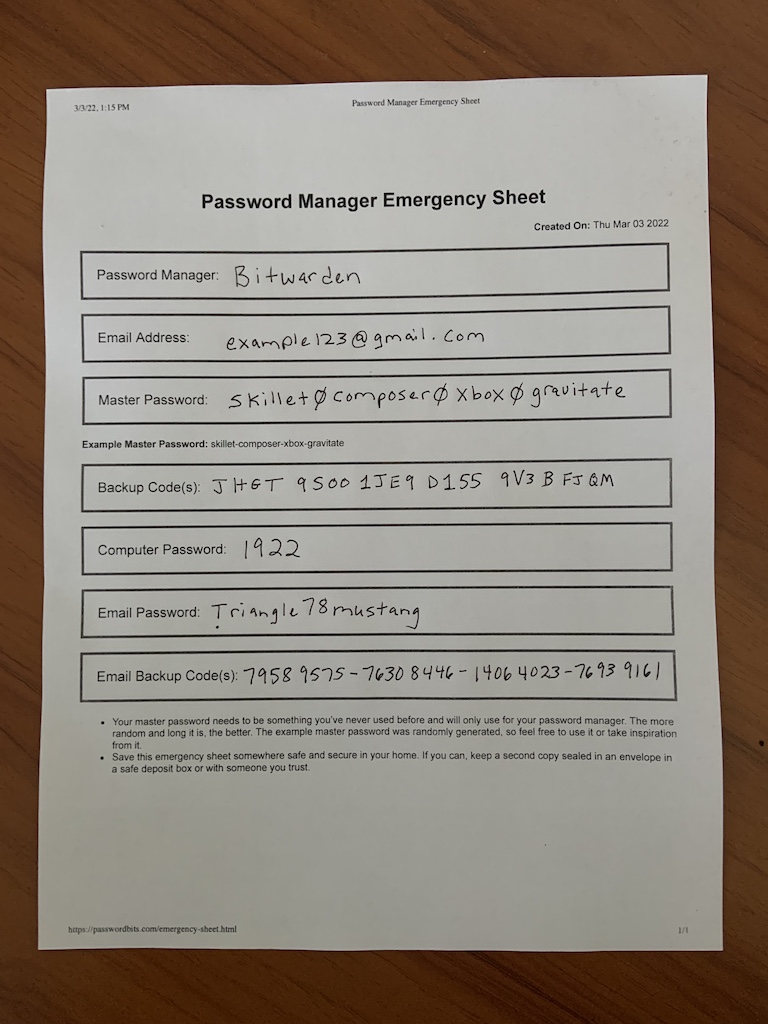 3/3/22, 1:15 PM
Password Manager Emergency Sheet
Password Manager Emergency Sheet
Created On: Thu Mar 03 2022
Password Manager: Bitwarden
Email Address: example123@gmail.com
Master Password: skillet0composer0xbox0gravitate
Example Master Password: skillet-composer-xbox-gravitate
Backup Code(s): JHGT 9S00 1JE9 D155 9V3B FJQM
Computer Password: 1922
Email Password: Triangle78mustang
Email Backup Code(s): 7958 9575-7630 8446-1406 4023-7693 9161
• Your master password needs to be something you've never used before and will only use for your password manager. The more
random and long it is, the better. The example master password was randomly generated, so feel free to use it or take inspiration
from it.
• Save this emergency sheet somewhere safe and secure in your home. If you can, keep a second copy sealed in an envelope in
a safe deposit box or with someone you trust.
https://passwordbits.com/emergency-sheet.html
1/1